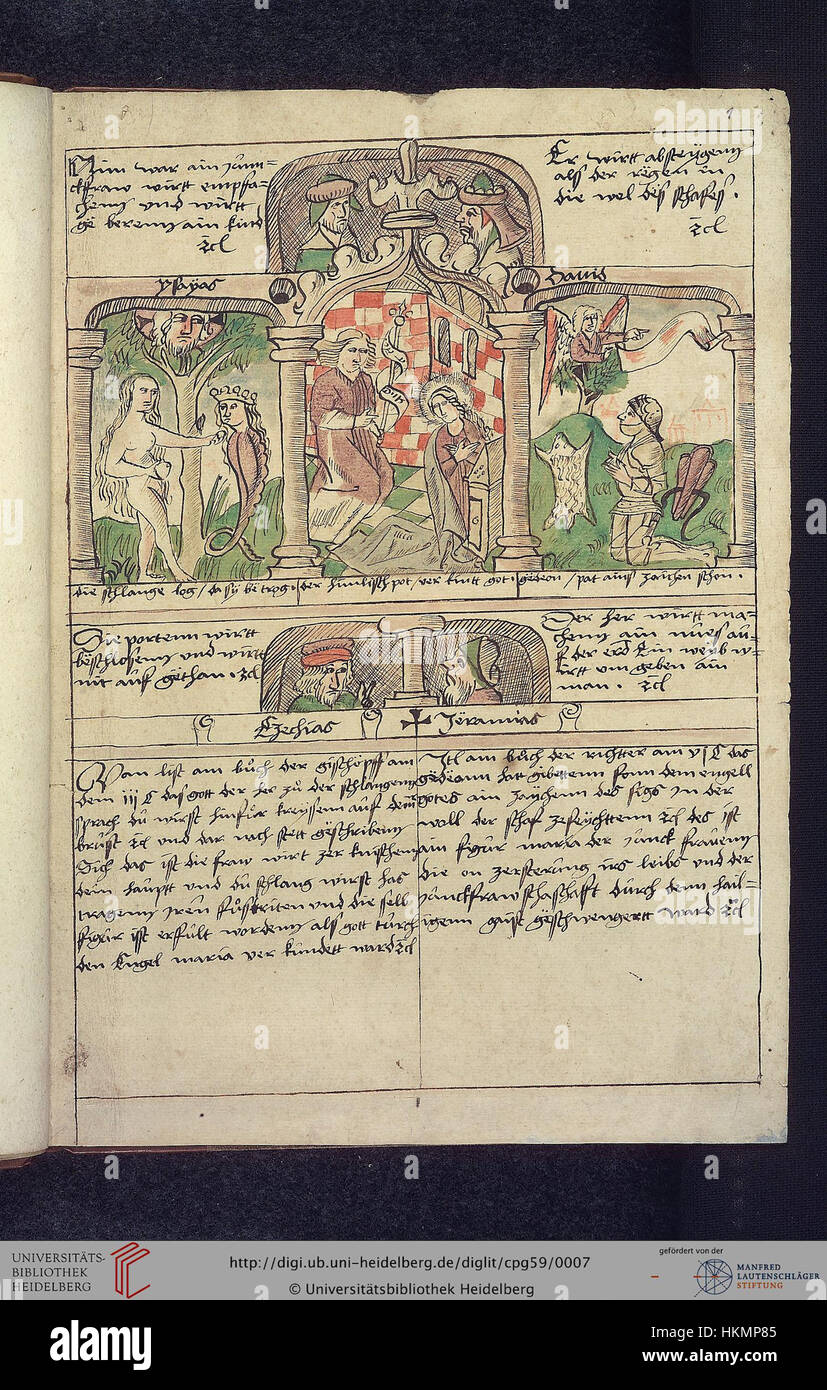 Nim war ain Junn=
ckfraw wirt empfa=
chenn und wirt
ge berenn ain kind
Er wirtt absteygenn
als der regen in
die wol des schafes .
ysayas
Davis
die schlange log / da sÿ be trog .
der himlisch pot / ver kint got .
gedeon / pat ains zaichen schon .
Die portenn wirtt
beschlosenn und wirt
nit auf gethan .
Der her wirtt ma=
chenn ain nues au=
f der erd Ain weyb w=
irtt um geben ain
man .
Ezechias
Jeramias
Man list am buͦch der gschöpff am
dem iii C das gott der her zuͦ der schlangenn
sprach du wirst hinfur kreyssenn auf dem
brust und dar nach stett geschribenn
Sich das ist die fraw wirt zer knischenn
dein hauptt und du schlang wirst has
tragenn iren fuͦstriten und die selb
figur ist erfult wordenn als gott durch
den Engel maria ver kundett ward
am buͦch der richter am vi C das
gedeonn hat gebettenn fonn dem engell
gotes ain zaychenn des sigs in der
woll der schaf des ist
ain figur maria der junck frauenn
die on zersterung irs leibs und der
junckfraw schafft durch denn hail=
igenn gaist geschwengertt ward
alamy
UNIVERSITÄTS-
BIBLIOTHEK
HEIDELBERG
http://digi.ub.uni-heidelberg.de/diglit/cpg59/0007
© Universitätsbibliothek Heidelberg
gefördert von der
MANFRED
LAUTENSCHLÄGER
STIFTUNG
alamy
Image ID: HKMP85
www.alamy.com